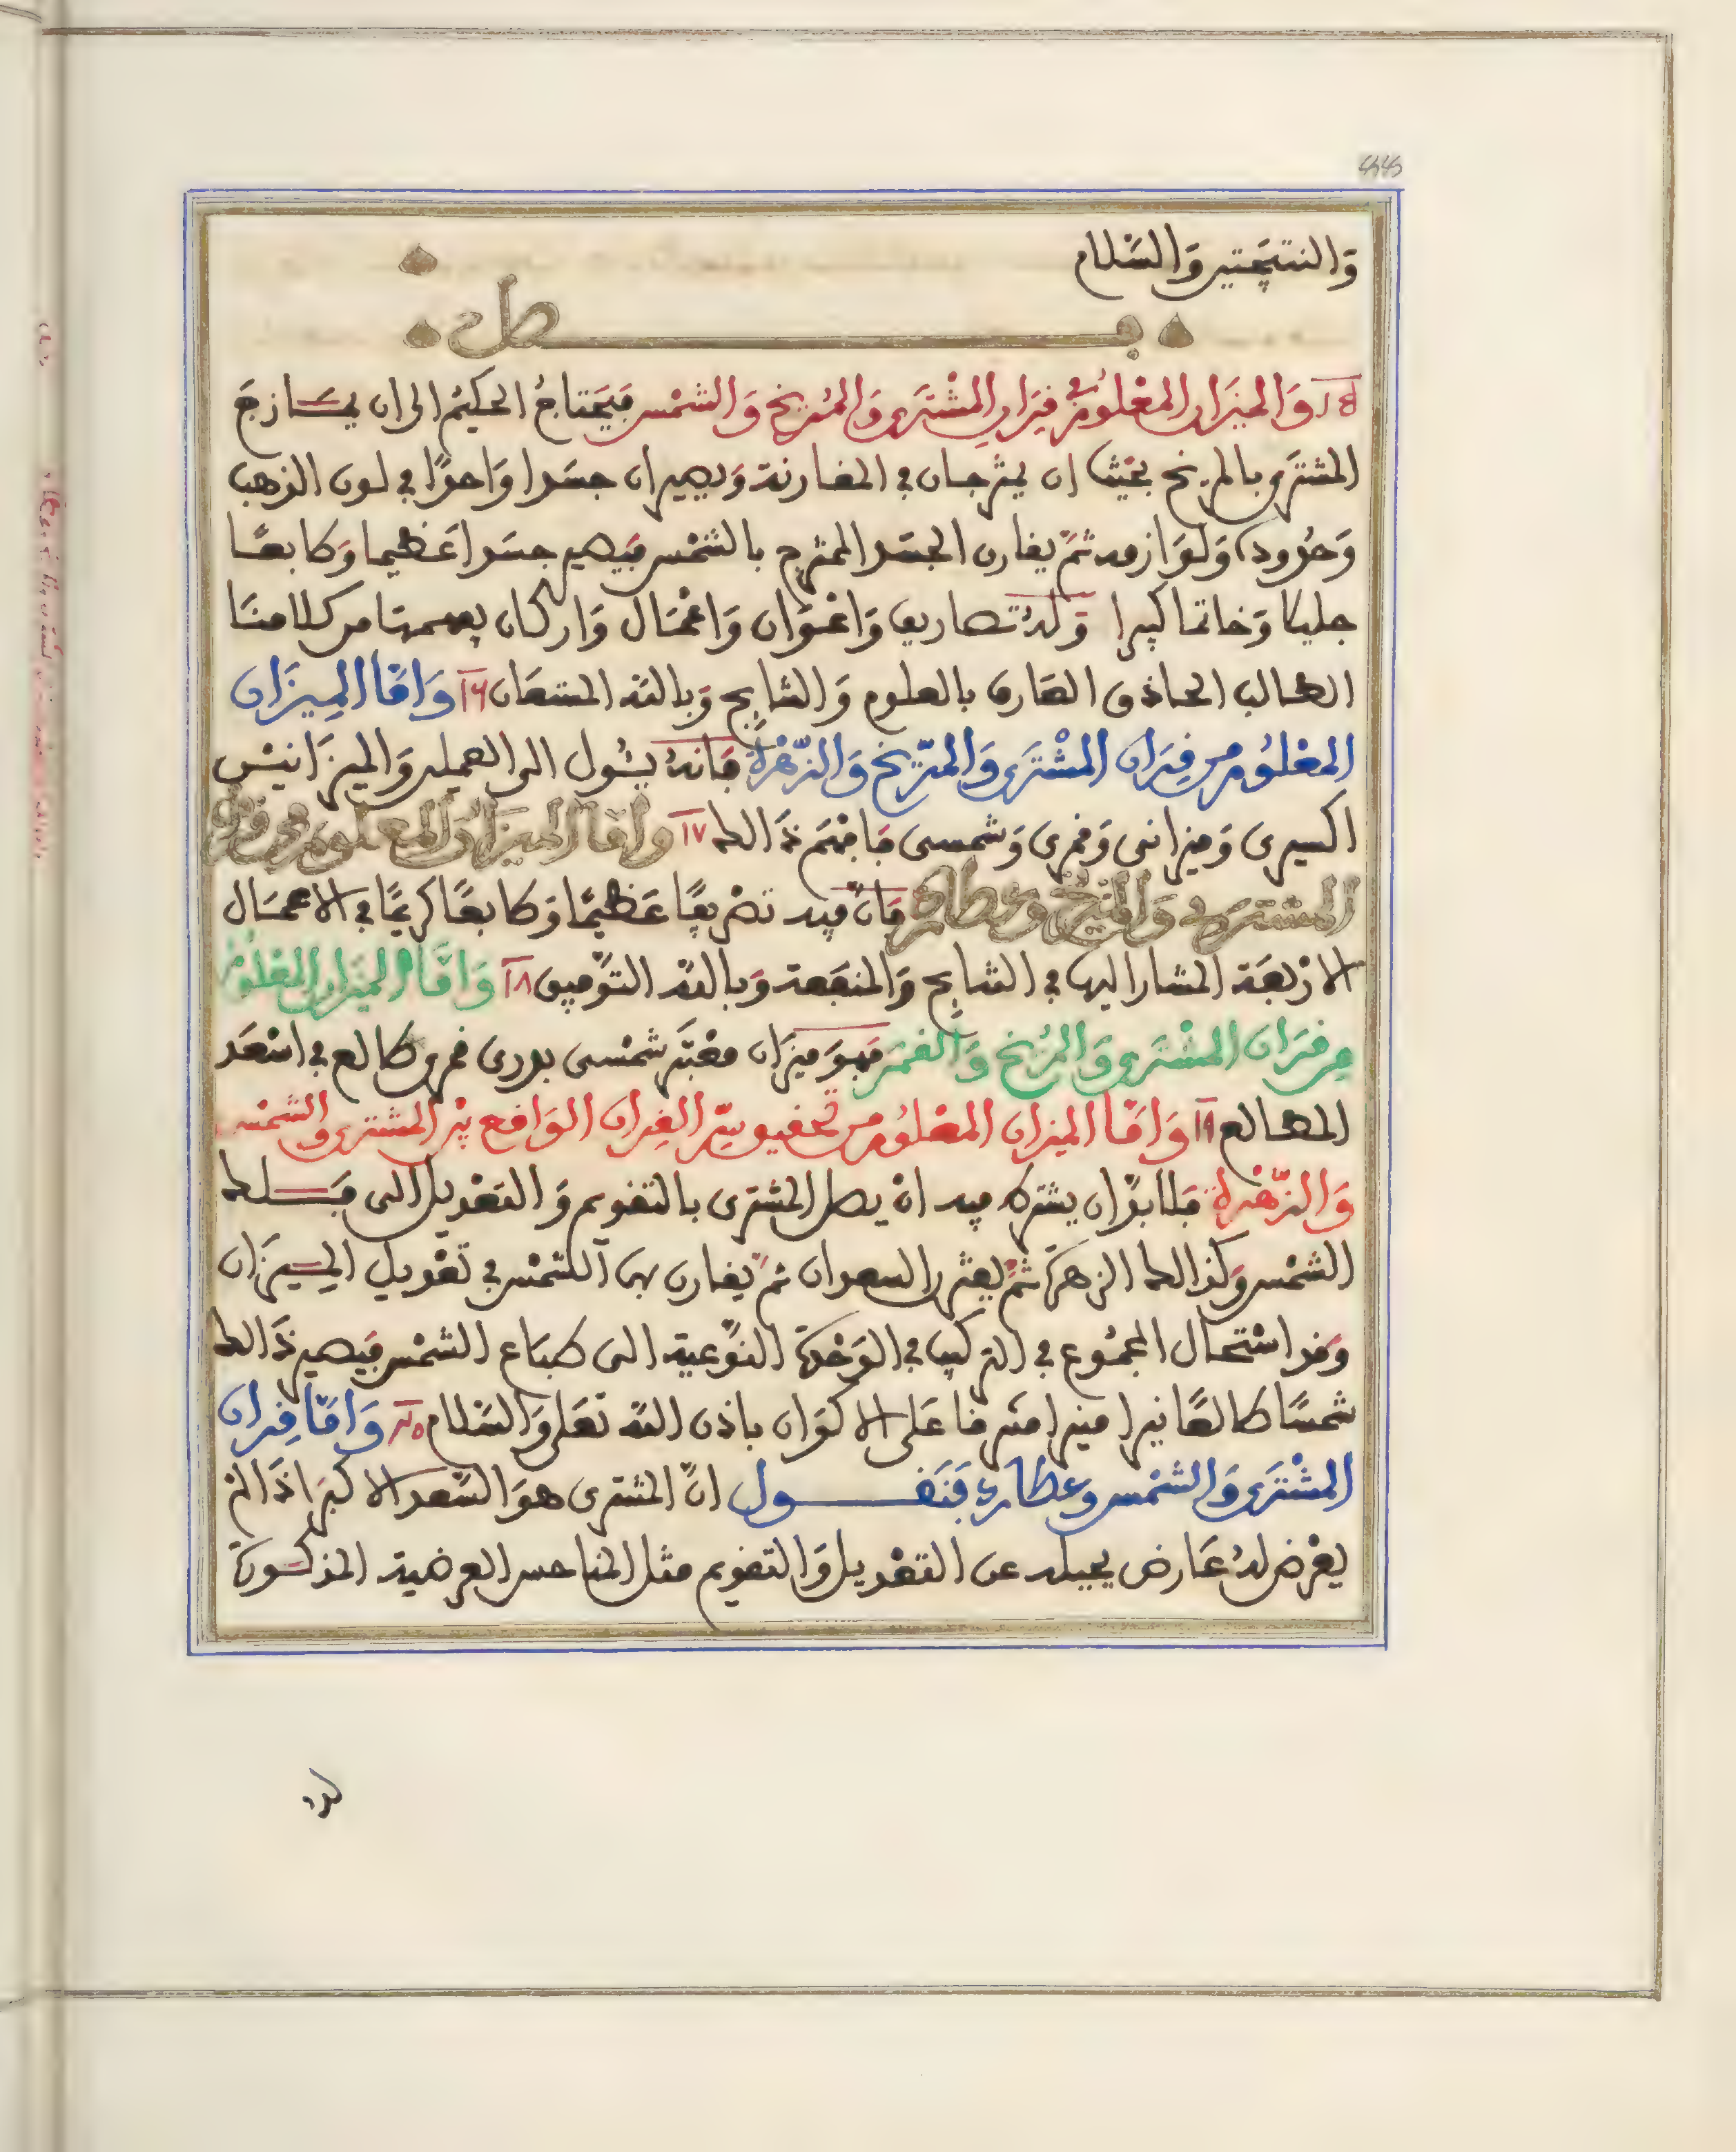 والنتيجتين والسلام
فصل
١٥ والميزان المعلوم في قران المشترى والمريخ والشمس فيحتاج الحكيم الى ان يمازج
المشترى بالمريخ بحيث ان يمتزجان في المقارنة ويصيران جسدا واحدا في لون الذهب
وحدوده ولوازمه ثم يقارن الجسد الممتزج بالشمس فيصير جسدا عظيما وطابعا
جليلا وخاتما كبيرا وله تصاريف واعوان واعمال واركان يفهمها من كلامنا
الطالب الحاذق العارف بالعلوم والنتايج وبالله المستعان ١٦ واما الميزان
المعلوم من قران المشترى والمريخ والزهرة فانه يئول الى العملية والميزانين
اكسيرى وميزانى وقمرى وشمسى فافهم ذالك ١٧ واما الميزان المعلوم من قران
المشترى والمريخ وعطارد فان فيه تصريفا عظيما وطابعا كريما في الاعمال
الاربعة المشار اليها في النتايج والمنفعة وبالله التوفيق ١٨ واما الميزان المعلوم
من قران المشترى والمريخ والقمر فهو ميزان معتبر شمسى بدرى قمرى طالع في اسعد
المطالع ١٩ واما الميزان المعلوم من تحقيق سر القران الواقع بين المشترى والشمس
والزهرة فلا بد ان يشترط فيه ان يصل المشترى بالتقويم والتعديل الى فلك
الشمس وكذالك الزهرة ثم يقترن السعدان ثم يقارن بهما الشمس في تعديل الميزان
وقد استحال المجموع في التركيب في الوحدة النوعية الى طباع الشمس فيصير ذالك
شمسا طالعا نيرا منيرا مشرقا على الاكوان باذن الله تعلى والسلام ٢٠ واما قران
المشترى والشمس وعطارد فنقول ان المشترى هو السعد الاكبر اذا لم
يعرض له عارض يحيله عن التعديل والتقويم مثل المناحس العرضية المذكورة